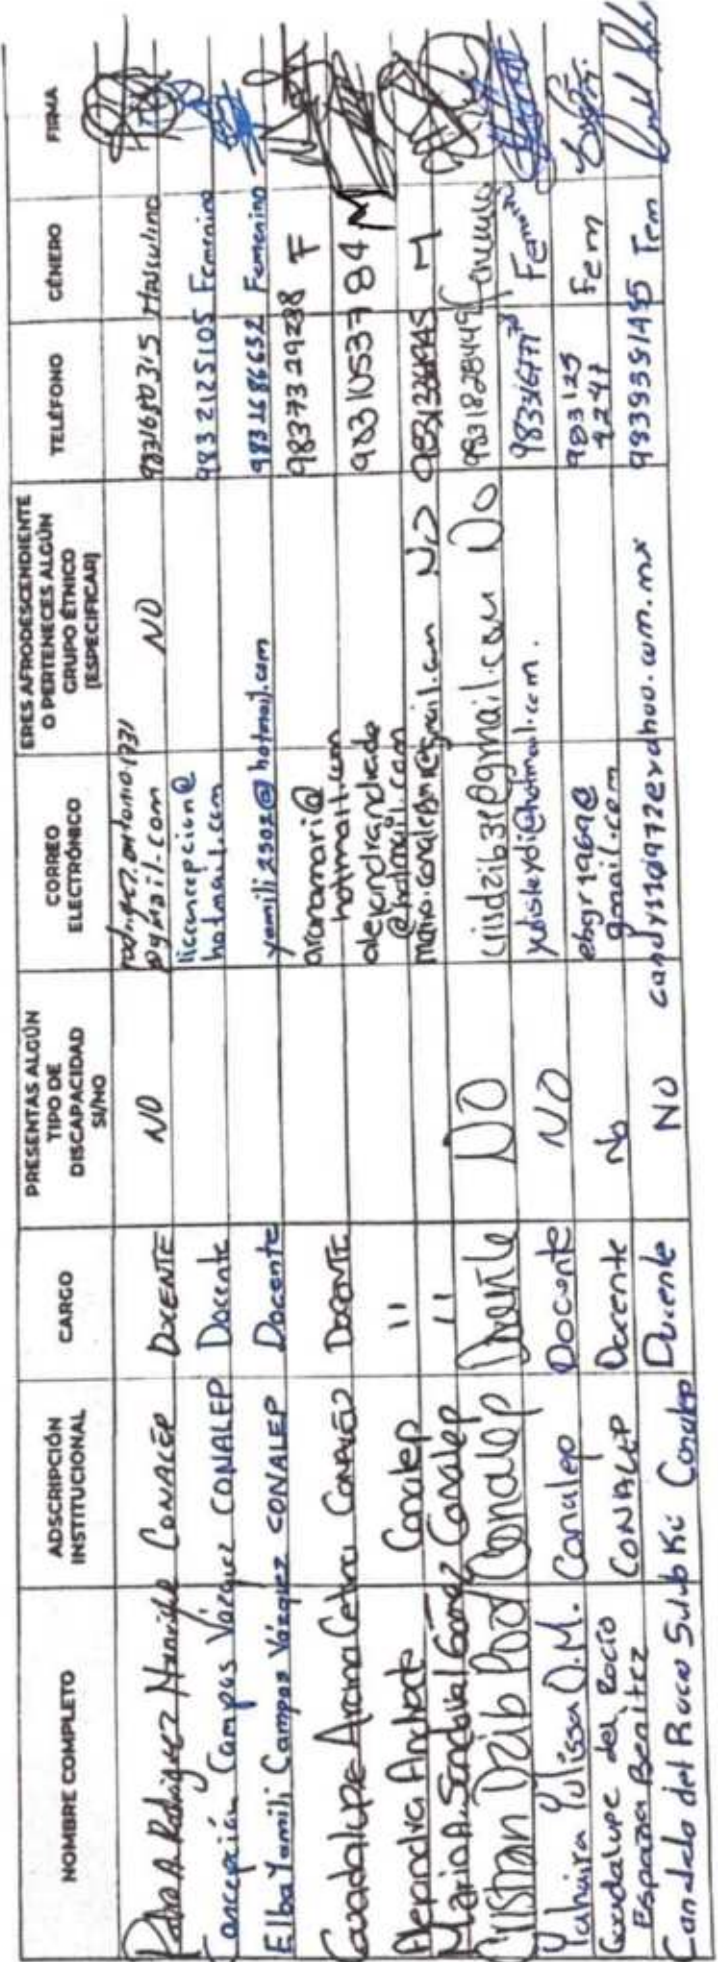 NOMBRE COMPLETO ADSCRIPCIÓN INSTITUCIONAL CARGO PRESENTAS ALGÚN TIPO DE DISCAPACIDAD SI/NO CORREO ELECTRÓNICO ERES AFRODESCENDIENTE O PERTENECES ALGÚN GRUPO ÉTNICO [ESPECIFICAR] TELÉFONO GÉNERO FIRMA
A Rodriguez Manrique CONALEP DOCENTE NO @gmail.com NO 9831680315 Masculino
Concepción Campos Vázquez CONALEP Docente licconcepcion@hotmail.com 9832125105 Femenino
Elba Yamili Campos Vázquez CONALEP Docente yamili2502@hotmail.com 9831686632 Femenino
Guadalupe Arana CONALEP DOCENTE aranamari@hotmail.com 9837329238 F
Alejandra Andrade Conalep " alejandrandrade@hotmail.com 9831053784 M
Mario A. Sandoval Gómez Conalep " NO M
Cristian Dzib Poot Conalep Docente NO crisdzib31@gmail.com NO 9831828449
Yahaira Yulissa O.M. Conalep Docente NO Femenino
Guadalupe del Rocío España Benitez CONALEP Docente No ebgr1969@gmail.com 983125 4247 Fem
Candelo del Roco Sulub Ki Conalep Docente NO 9839391495 Fem